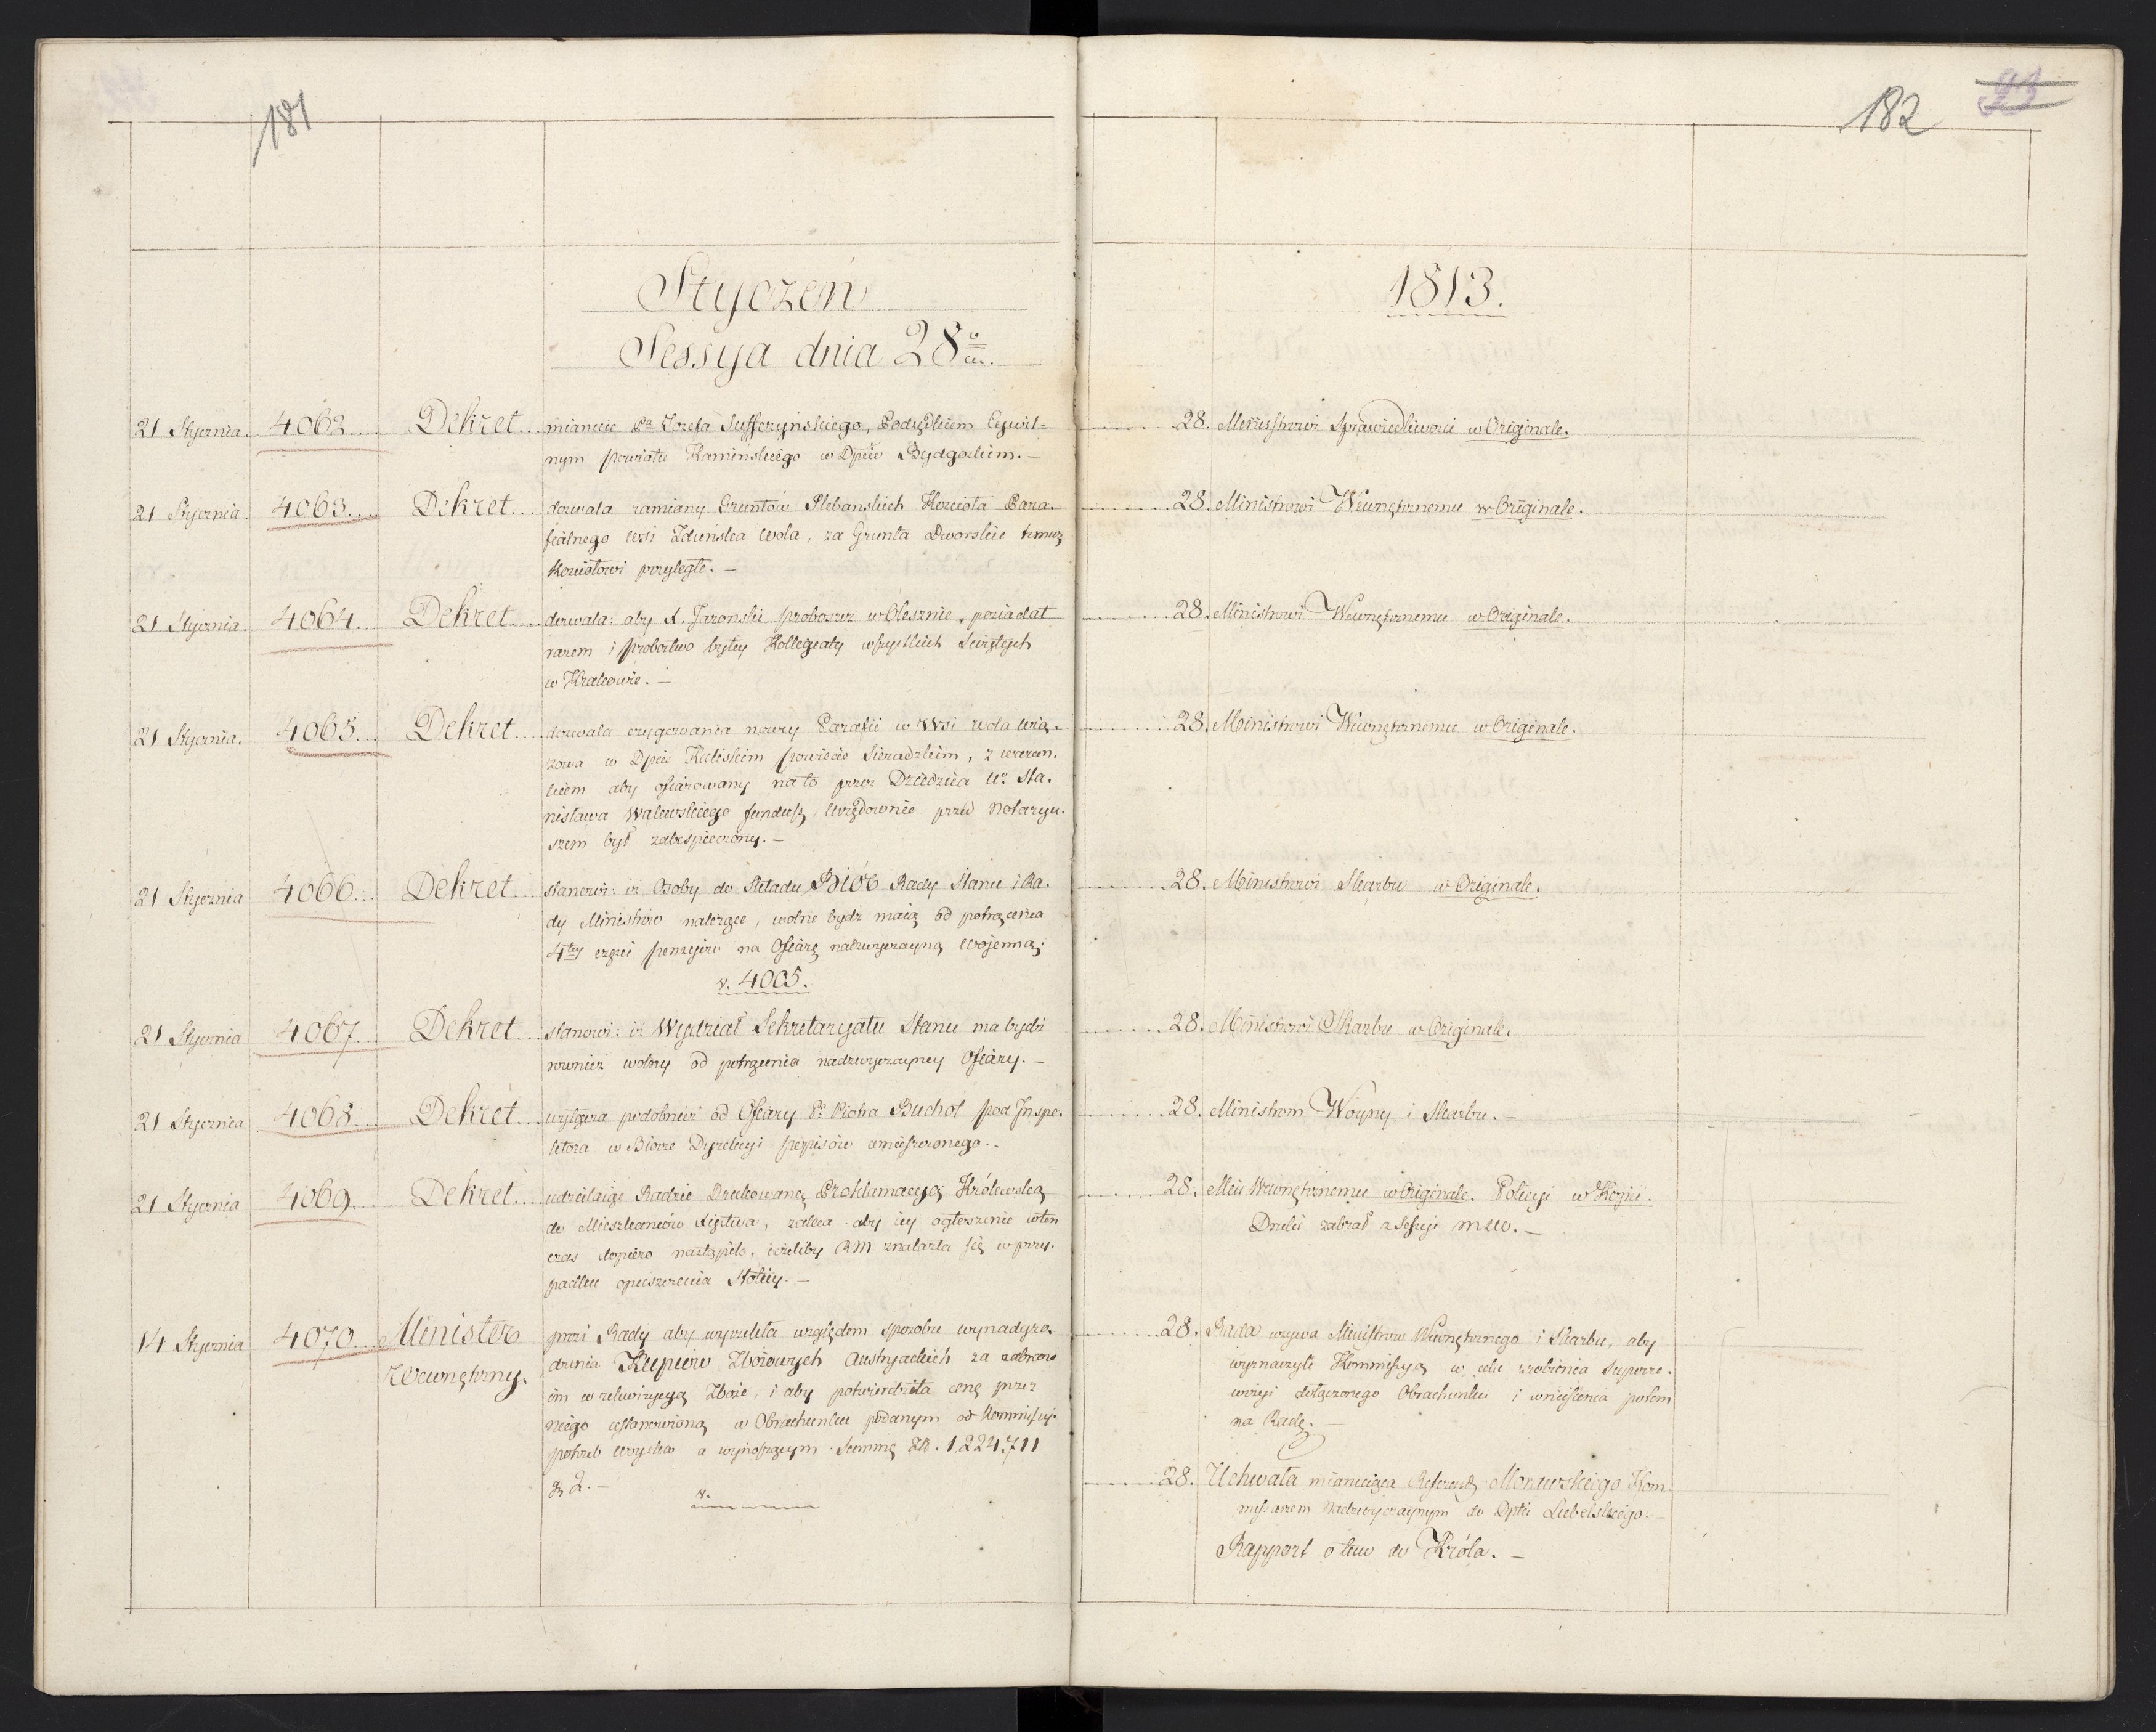 181
182
93
Styczeń
1813.
Sessya dnia 28go
21 Stycznia. 4062. Dekret mianuie Pa Jozefa Suffczynskiego, Podsędkiem Cywil=
nym powiatu Kaminskiego w Dpcie Bydgoskim.—
28. Ministrowi Sprawiedliwości w Originale.
21 Stycznia. 4063. Dekret dozwala zamiany Gruntów Plebanskich Kościoła Para-
fialnego wsi Zdunska Wola, za Grunta Dworskie temuż
Kościołowi przyległe.—
28. Ministrowi Wewnętrznemu w Originale.
21 Stycznia. 4064. Dekret dozwala: aby X. Jaronski proboszcz w Olesznie, posiadał
razem i probostwo byłey Kollegiaty wszystkich Swiętych
w Krakowie.—
28. Ministrowi Wewnętrznemu w Originale.
21 Stycznia. 4065. Dekret dozwala erygowania nowey Parafii w Wsi Wola Wią-
zowa w Dpcie Kaliskim powiecie Sieradzkim, z warun-
kiem aby ofiarowany na to przez Dziedzica Uo Sta-
nisława Walewskiego fundusz, Urzędownie przed Notaryu-
szem był zabespieczony.—
28. Ministrowi Wewnętrznemu w Originale.
21 Stycznia 4066. Dekret stanowi: iż Osoby do Składu Biór Rady Stanu i Ra-
dy Ministrów należące, wolne bydź maią od potrącenia
4tey części pensyiów na Ofiarę nadzwyczayną Wojenną;
v. 4005.
28. Ministrowi Skarbu w Originale.
21 Stycznia 4067. Dekret stanowi: iż Wydział Sekretaryatu Stanu ma bydź
rownież wolny od potrącenia nadzwyczayney Ofiary.—
28. Ministrowi Skarbu w Originale.
21 Stycznia 4068. Dekret wyłącza podobnież od Ofiary Po Piotra Buchol pod Inspe-
ktora w Biorze Dyrekcyi popisów umieszczonego.-
28. Ministrom Woyny i Skarbu.—
21 Stycznia 4069. Dekret udzielaiąc Radzie Drukowaną Proklamacyą Królewską
do Mieszkanców Xięstwa, zaleca aby iey ogłoszenie wten
czas dopiero nastąpiło, ieżeliby RM znalazła się w przy-
padku opuszczenia Stolicy.—
28. Mcu Wewnętrznemu w Originale. Policyi w Kopii.
Druki zabrał z Sessyi MSW.—
14 Stycznia 4070. Minister
Wewnętrzny.
prosi Rady aby wyrzekła względem sposobu wynadgro-
dzenia Kupców Zbożowych Austryackich za zabrane
im w rekwizycyą Zboże, i aby potwierdziła cenę przez
niego ustanowioną w Obrachunku podanym od Kommissyi
potrzeb Woyska a wynoszącym Summę Zł. 1,224,711
gr 2.—
v.
28. Rada wzywa Ministrow Wewnętrznego i Skarbu, aby
wyznaczyli Kommissyą w celu zrobienia Superre-
wizyi dołączonego Obrachunku i wniesienia potem
na Radę.—
28. Uchwała mianuiąca Referend. Morawskiego Kom-
missarzem Nadzwyczaynym do Dptu Lubelskiego.—
Rapport o tem do Króla.—